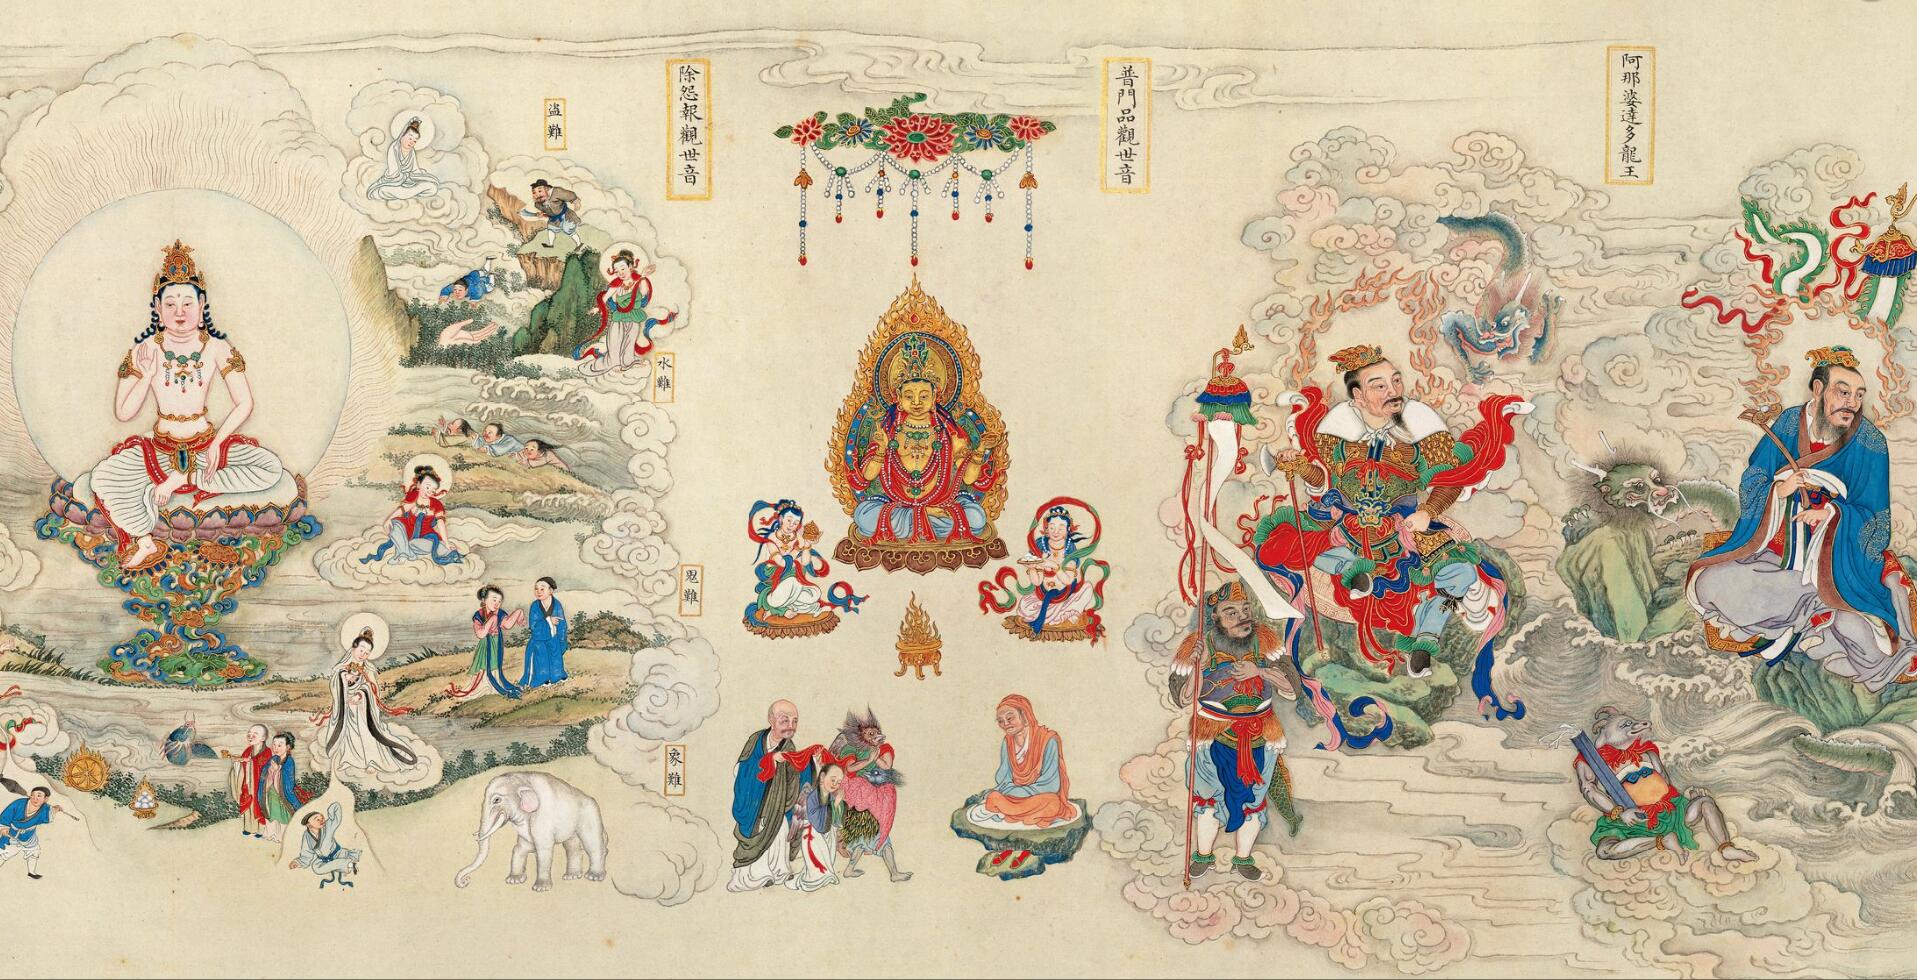 阿那婆達多龍王
普門品觀世音
除怨報觀世音
盜難
水難
鬼難
象難